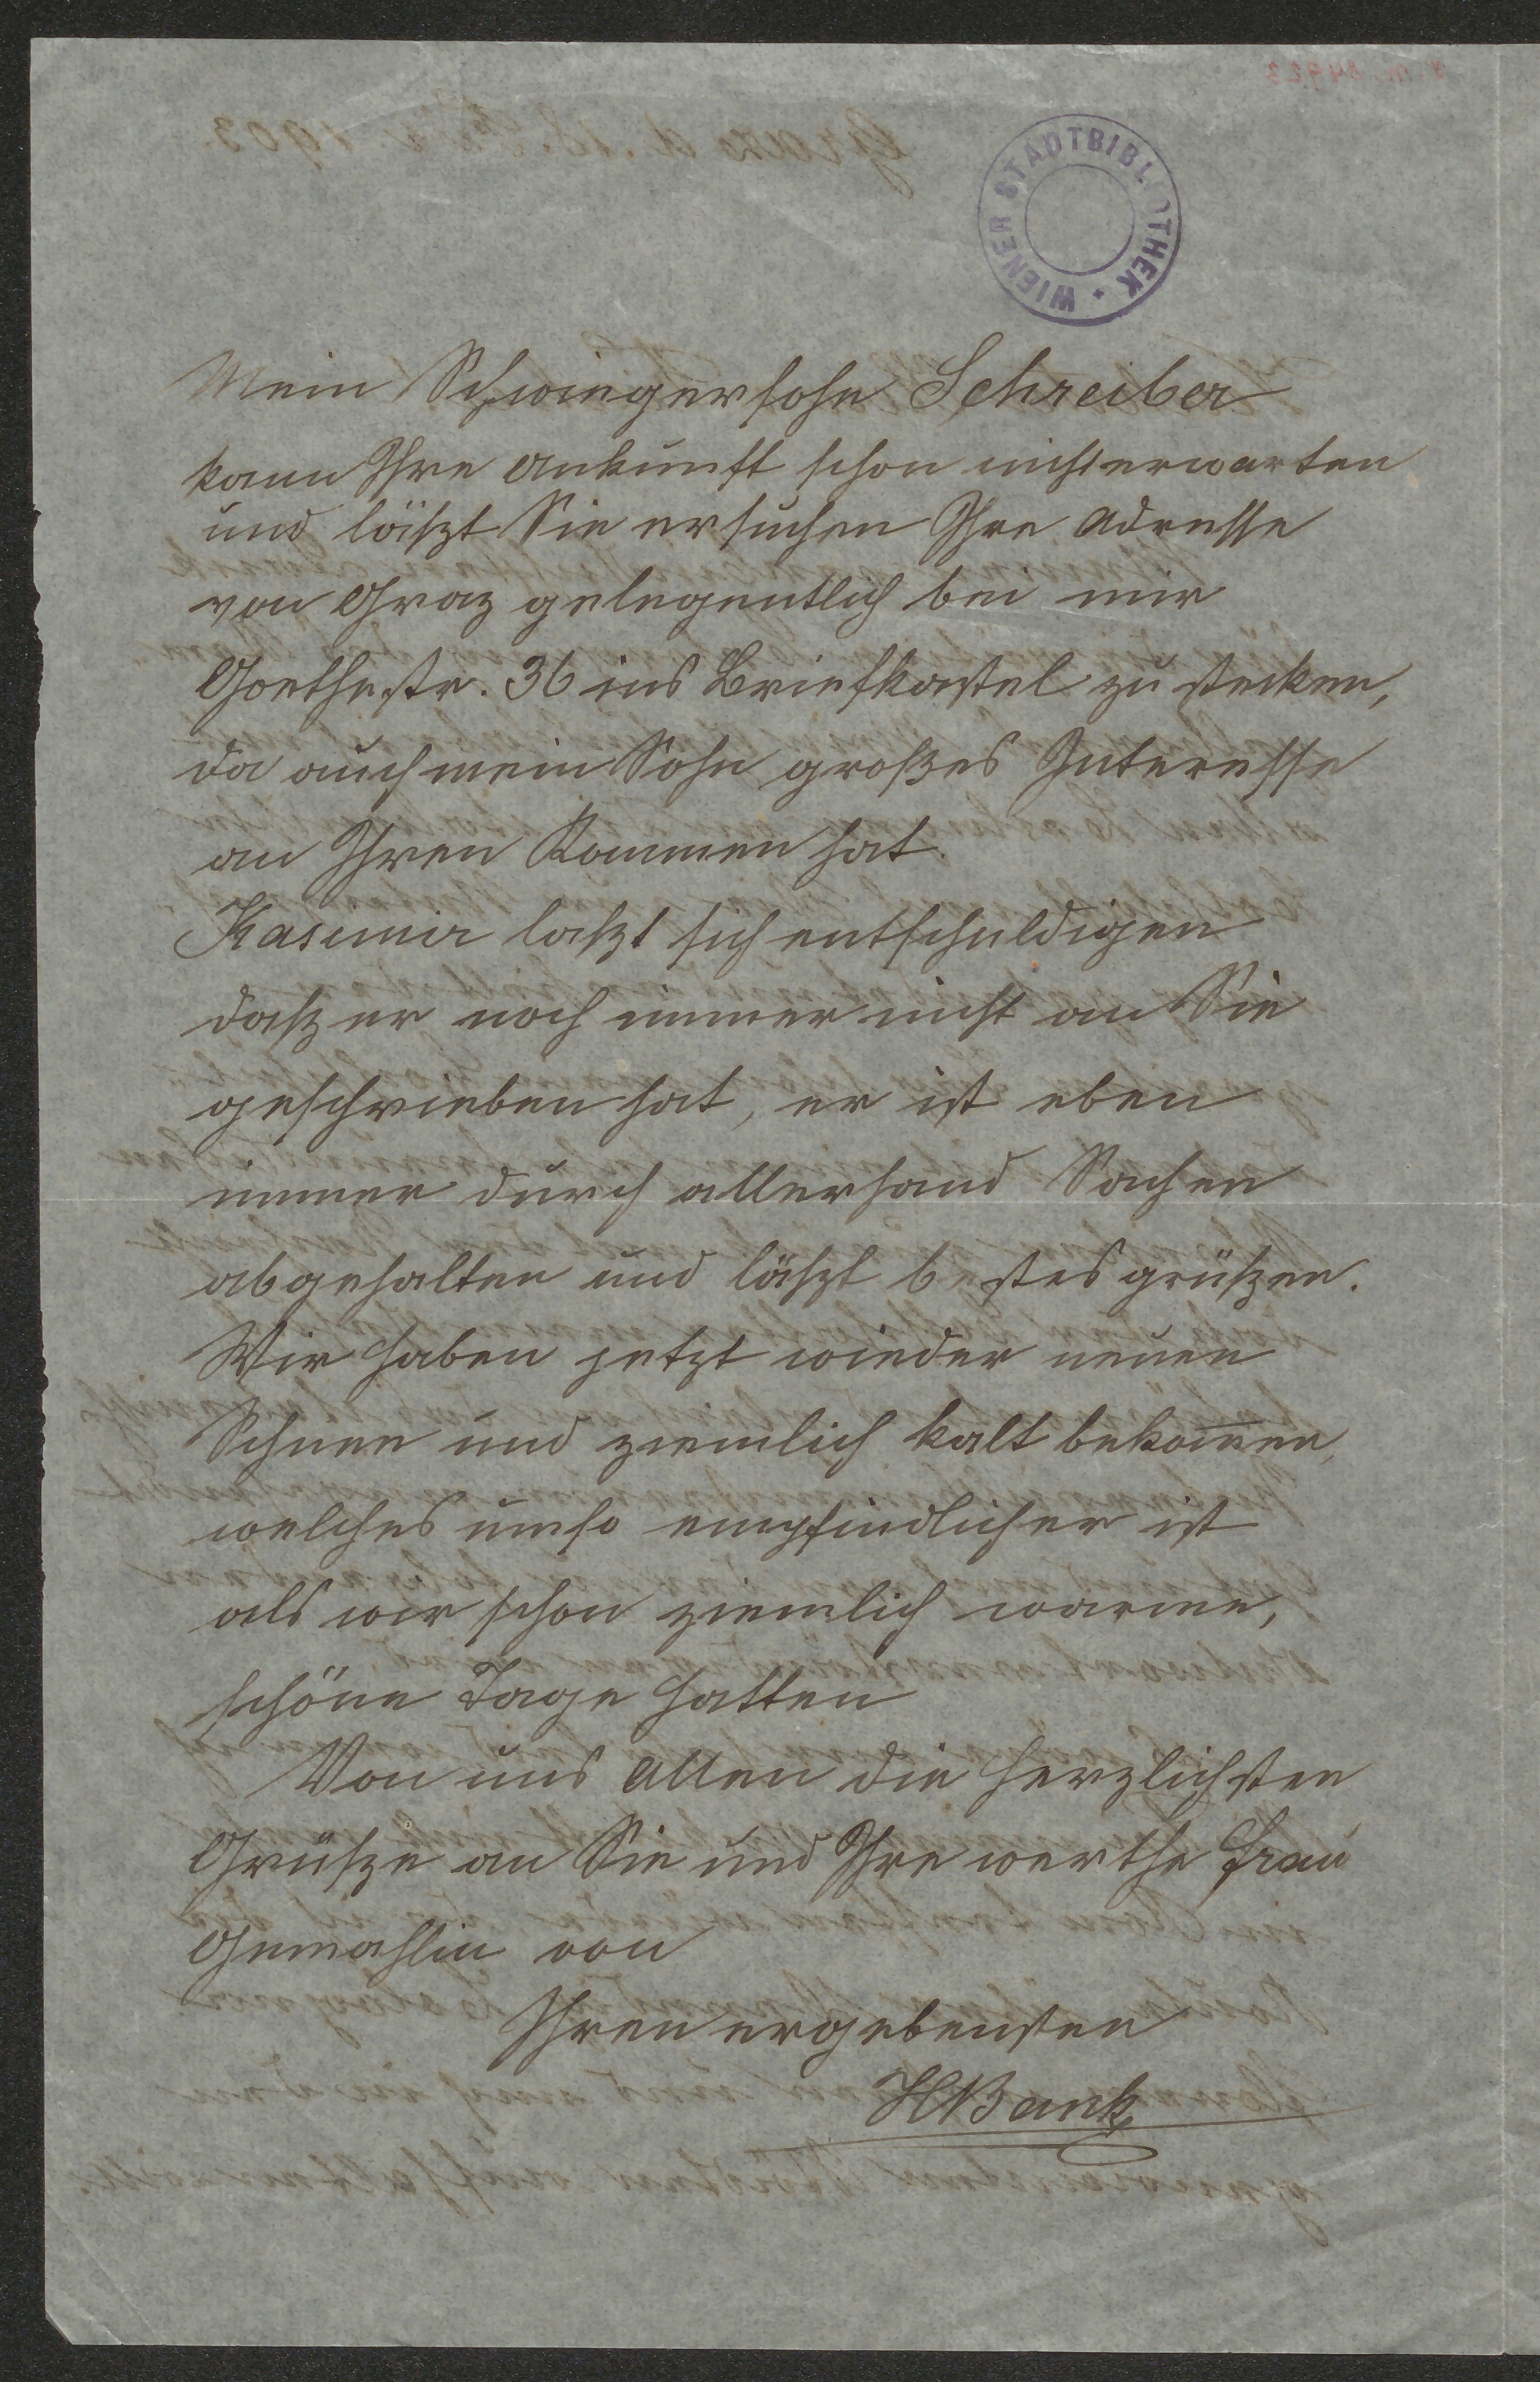 WIENER STADTBIBLIOTHEK
Mein Schwiegersohn Schreiber
kann Ihre Ankunft schon nicht erwarten
und läßzt Sie ersuchen Ihre Adresse
von Graz gelegentlich bei mir
Goethestr. 36 ins Briefkastel zu stecken,
da auch mein Sohn großes Interesse
an Ihren Kommen hat.
Kasimir laßzt sich entschuldigen
daßz er noch immer nicht an Sie
geschrieben hat, er ist eben
immer durch allerhand Sachen
abgehalten und läßzt bestes grüßzen.
Wir haben jetzt wieder neuen
Schnee und ziemlich kalt bekom̅en,
welches umso empfindlicher ist
als wir schon ziemlich warme,
schöne Tage hatten
Von uns Allen die herzlichsten
Grüßze an Sie und Ihre werthe Frau
Gemahlin von
Ihren ergebensten
HBank